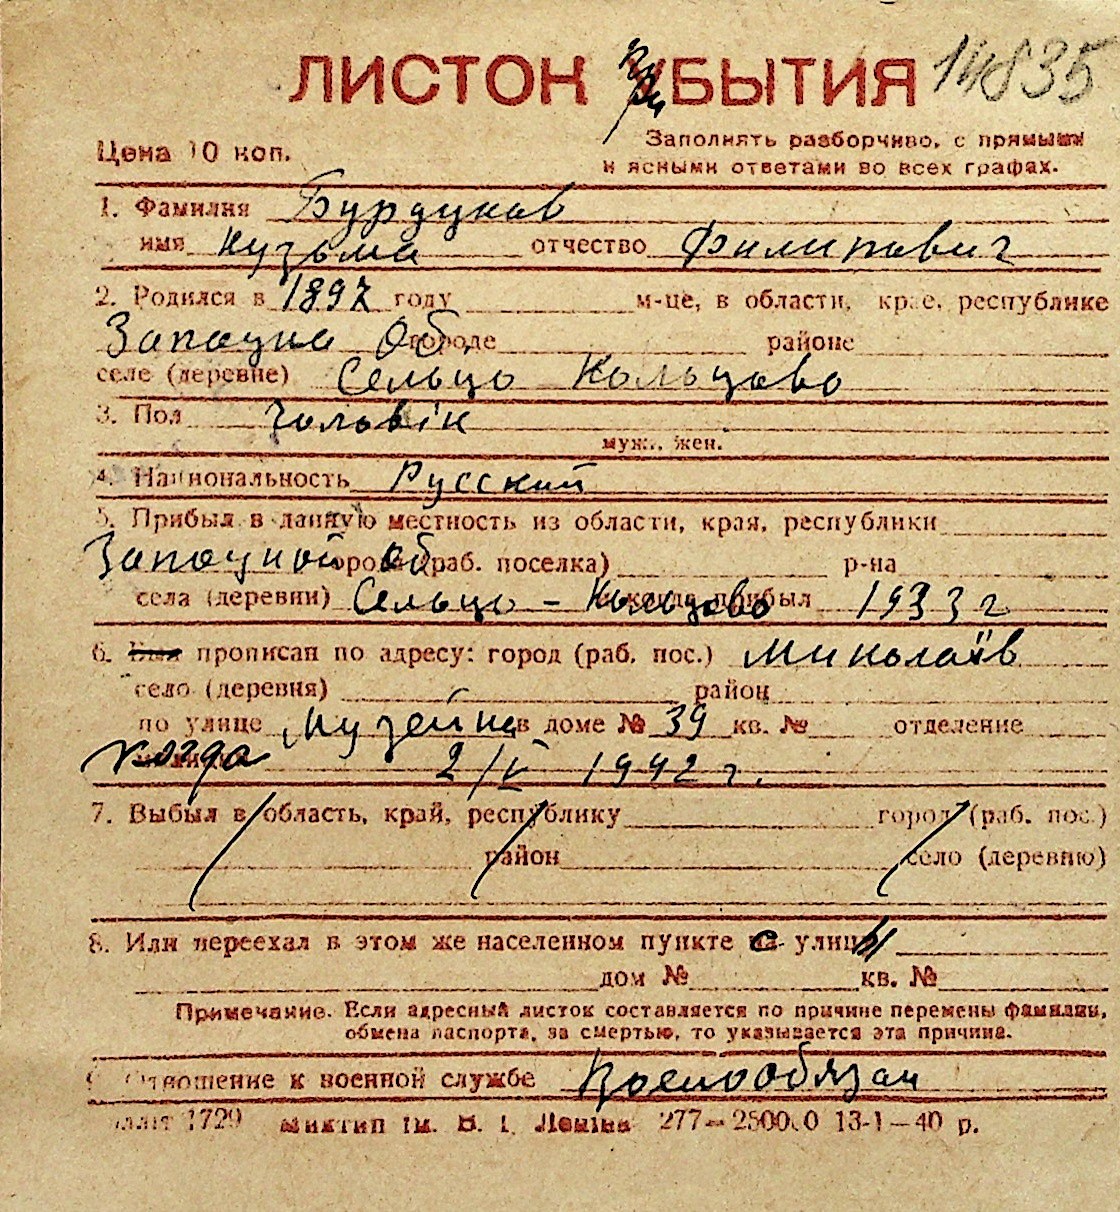 ЛИСТОК ПРИБЫТИЯ 14835
Цена 10 коп.
Заполнять разборчиво, с прямыми
и ясными ответами во всех графах.
1. Фамилия Бурдуков
имя Кузьма отчество Филипович
2. Родился в 1897 году м-це, в области, крае, республике
Западна Об. городе районе
селе (деревне) Сельцо Кольцово
3. Пол чоловік
муж., жен.
4. Национальность Русский
5. Прибыл в данную местность из области, края, республики
Западной Об города (раб. поселка) р-на
села (деревни) Сельцо - Кольцово и когда прибыл 1933 г
6. Был прописан по адресу: город (раб. пос.) Миколаїв
село (деревня) район
по улице Музейна в доме № 39 кв. № отделение
когда 2/V 1942 г.
7. Выбыл в область, край, республику город (раб. пос.)
район село (деревню)
8. Или переехал в этом же населенном пункте с улицы
дом № кв. №
Примечание. Если адресный листок составляется по причине перемены фамилии,
обмена паспорта, за смертью, то указывается эта причина.
9. Отношение к военной службе Военообязан
1729 ім. В. І. Леніна 277—250000 13-1—40 р.